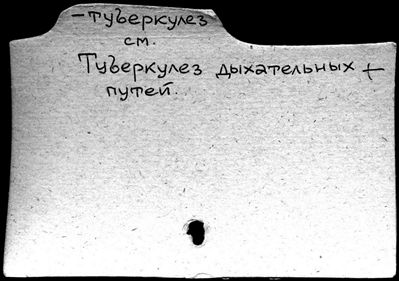 - туберкулез
см.
Туберкулез дыхательных +
путей.